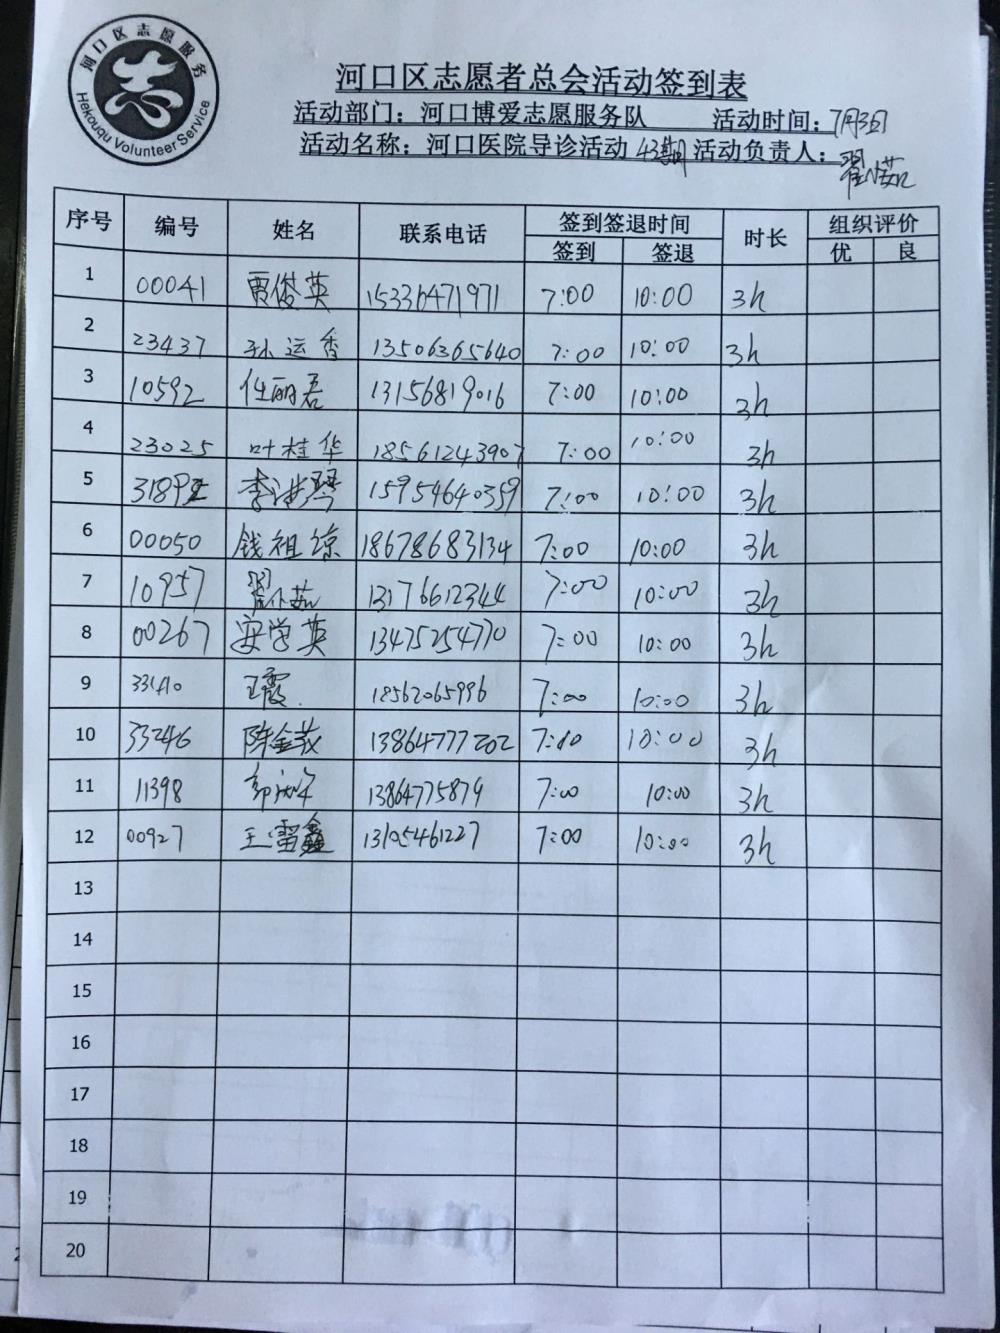 河口区志愿服务
志
Hekouqu Volunteer Service
河口区志愿者总会活动签到表
活动部门：河口博爱志愿服务队 活动时间：7月3日
活动名称：河口医院导诊活动 43期 活动负责人：翟小茹
序号 编号 姓名 联系电话 签到签退时间 时长 组织评价
签到 签退 优 良
1 00041 贾俊英 15336471971 7:00 10:00 3h
2 23437 孙运香 13506365640 7:00 10:00 3h
3 10592 任丽君 13156819016 7:00 10:00 3h
4 23025 叶桂华 18561243907 7:00 10:00 3h
5 李洪琴 15954640359 7:00 10:00 3h
6 00050 钱祖琼 18678683134 7:00 10:00 3h
7 10957 翟小茹 13176612344 7:00 10:00 3h
8 00267 安学英 13475254770 7:00 10:00 3h
9 王霞 18562065996 7:00 10:00 3h
10 33246 陈金花 13864777202 7:00 10:00 3h
11 11398 13864775879 7:00 10:00 3h
12 00927 王雷鑫 13105461227 7:00 10:00 3h
13
14
15
16
17
18
19
20